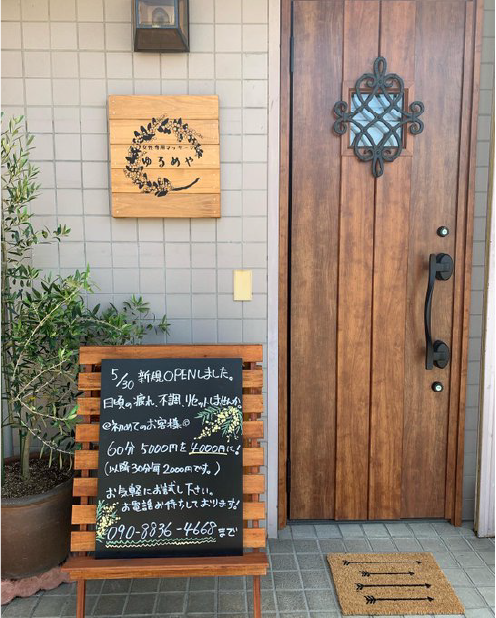 女性専用マッサージ
ゆるめや
5/30 新規OPENしました。
日頃の疲れ、不調、リセットしませんか
◎初めてのお客様◎
60分 5000円を 4000円に!
(以降30分毎2,000円です。)
お気軽にお試し下さい。
お電話お待ちしております!
090-8836-4668まで